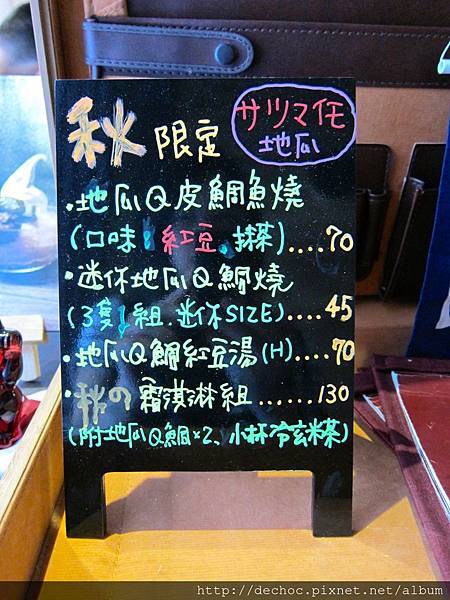 秋 限定 サツマイモ
地瓜
・地瓜Q皮鯛魚燒
(口味:紅豆、抹茶)....70
・迷你地瓜Q鯛燒
(3隻1組.迷你SIZE)....45
・地瓜Q鯛紅豆湯(H)....70
・秋の霜淇淋組......130
(附地瓜Q鯛x2、小杯冷玄米茶)
http://dechoc.pixnet.net/album